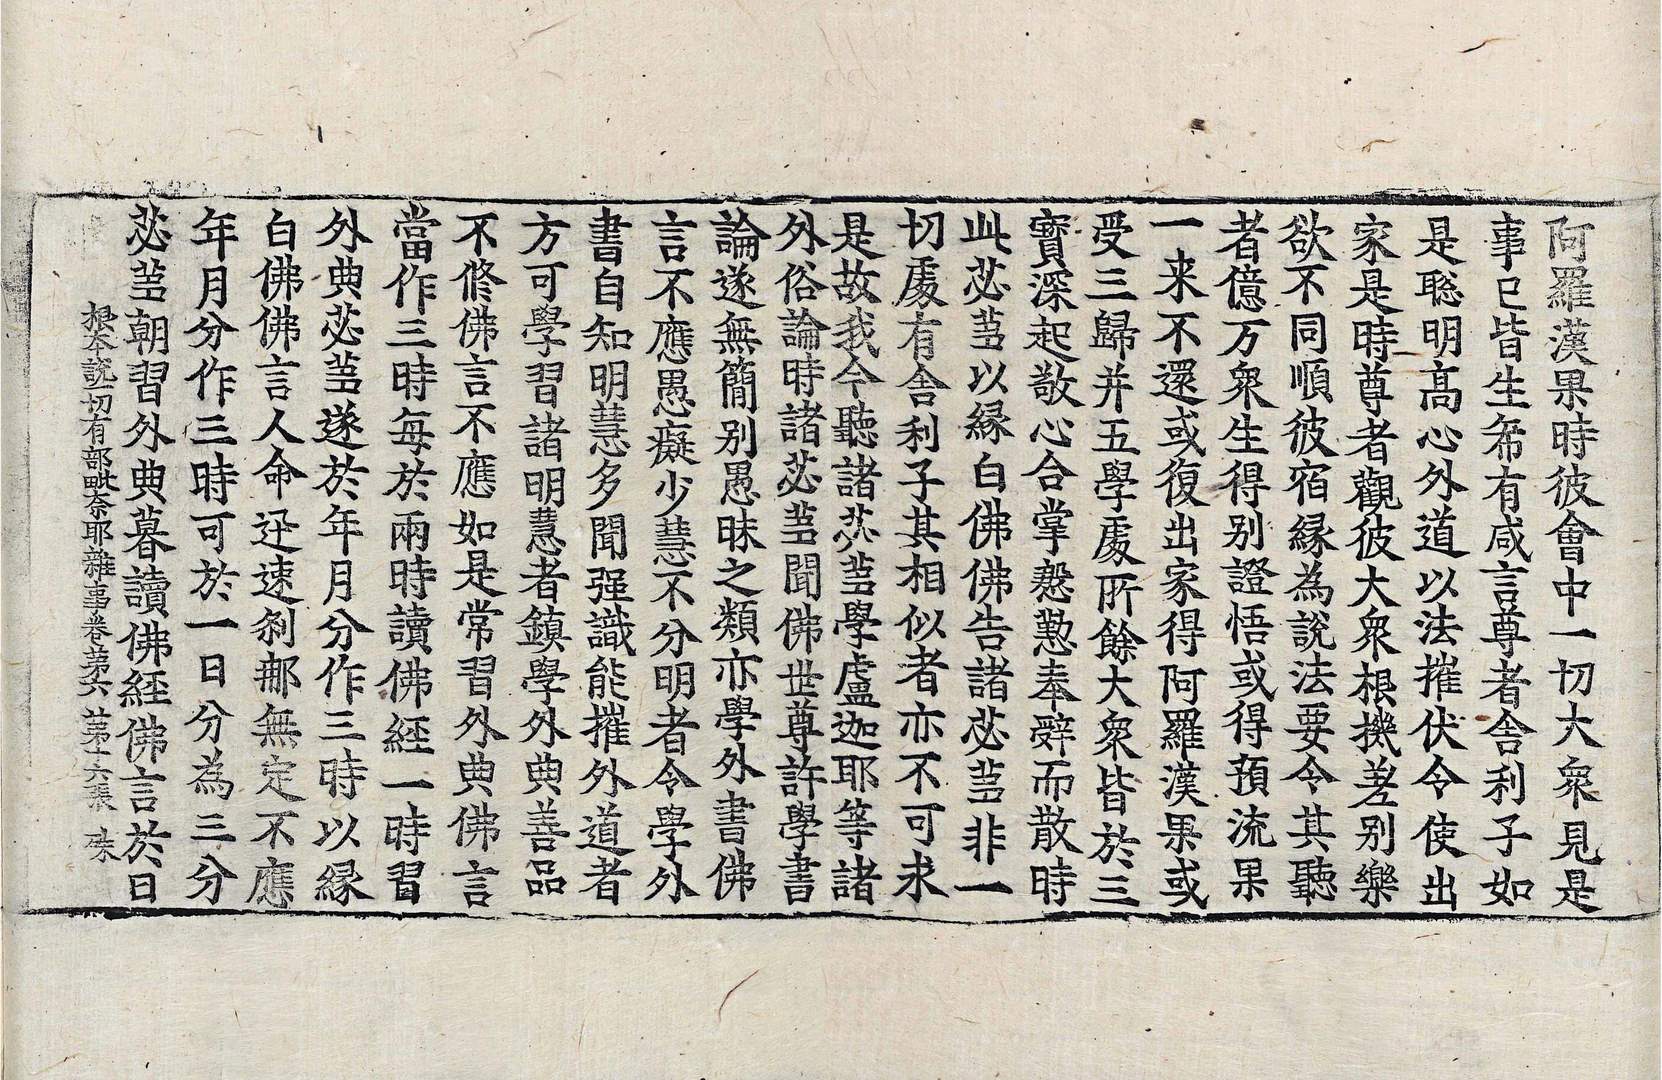 阿羅漢果時彼會中一切大衆見是
事已皆生希有咸言尊者舍利子如
是聡明高心外道以法摧伏令使出
家是時尊者觀彼大衆根機差別樂
欲不同順彼宿縁為說法要令其聽
者億万衆生得別證悟或得預流果
一来不還或復出家得阿羅漢果或
受三歸并五學處所餘大衆皆於三
寳深起敬心合掌慇懃奉辝而散時
此苾芻以縁白佛佛告諸苾芻非一
切處有舍利子其相似者亦不可求
是故我今聽諸苾芻學盧迦耶等諸
外俗論時諸苾芻聞佛世尊許學書
論遂無簡別愚昧之類亦學外書佛
言不應愚癡少慧不分明者令學外
書自知明慧多聞强識能摧外道者
方可學習諸明慧者鎮學外典善品
不修佛言不應如是常習外典佛言
當作三時每於兩時讀佛經一時習
外典苾芻遂於年月分作三時以縁
白佛佛言人命迅速刹那無定不應
年月分作三時可於一日分為三分
苾芻朝習外典暮讀佛經佛言於日
根夲說一切有部毗奈耶雜事卷苐六 苐十六張 殊